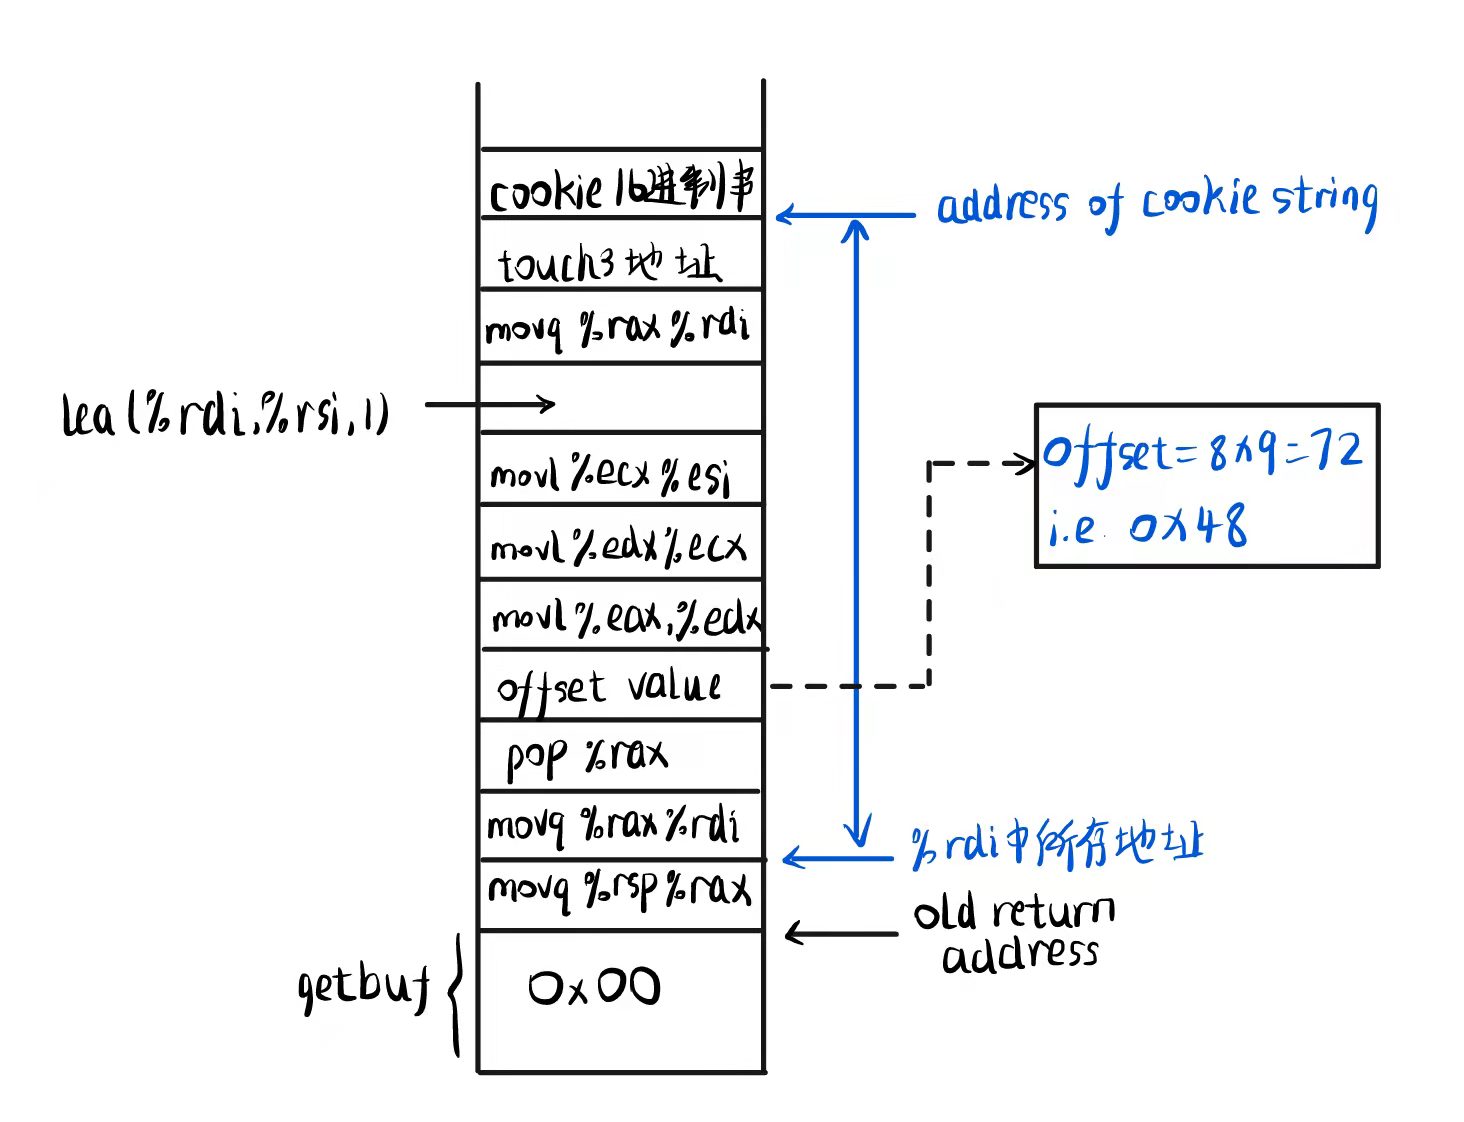 cookie 16进制串
address of cookie string
touch3地址
movq %rax %rdi
lea (%rdi,%rsi,1)
movl %ecx %esi
offset = 8×9=72
i.e. 0x48
movl %edx %ecx
movl %eax,%edx
offset value
pop %rax
movq %rax %rdi
%rdi中所存地址
movq %rsp %rax
old return
address
getbuf
0x00